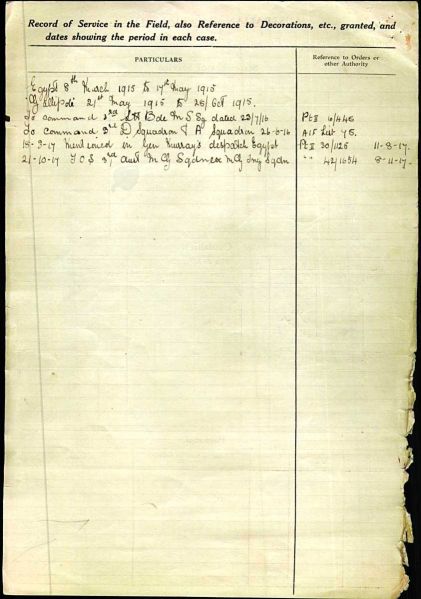 Record of Service in the Field, also Reference to Decorations, etc., granted, and
dates showing the period in each case.
PARTICULARS
Reference to Orders or
other Authority
Egypt 8th March 1915 to 17th May 1915
Gallipoli 21st May 1915 to 26/Oct 1915.
To command LH Bde M S dated 22/7/16 Pt II
To Command 3rd Squadron & A Squadron 26-6-16 A15 List 45.
15-3-17 Mentioned in Gen Murray's despatch Egypt Pt II 30/1125 11-8-17.
21-10-17 T O S 3rd Aust M G Sqdn ex M G Sqdn " 42/1654 8-11-17.